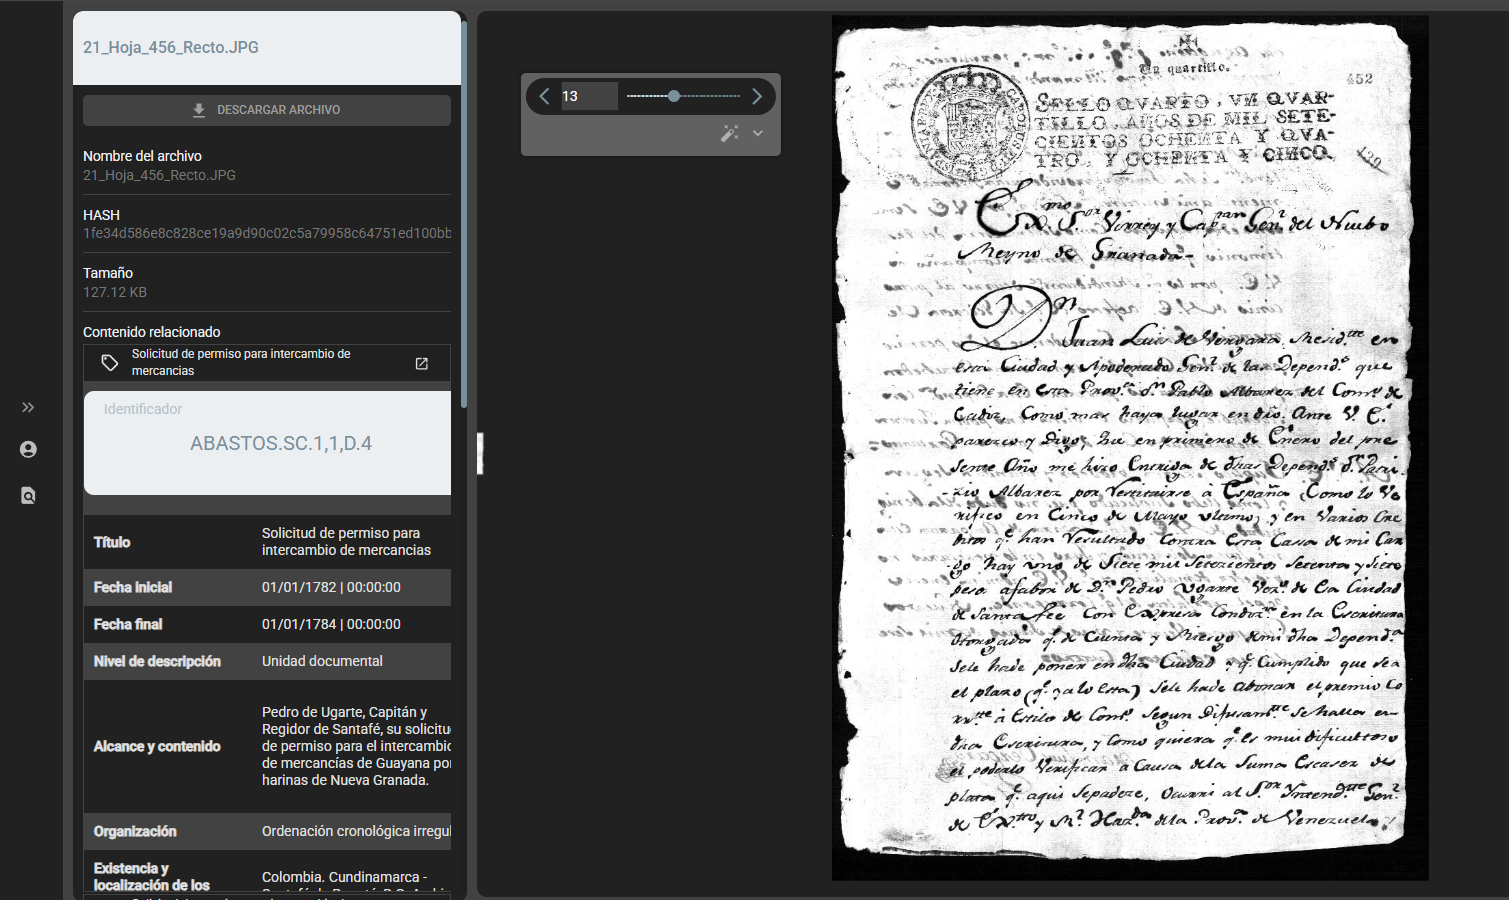 21_Hoja_456_Recto.JPG
DESCARGAR ARCHIVO
Nombre del archivo
21_Hoja_456_Recto.JPG
HASH
1fe34d586e8c828ce19a9d90c02c5a79958c64751ed100bb
Tamaño
127.12 KB
Contenido relacionado
Solicitud de permiso para intercambio de
mercancias
Identificador
ABASTOS.SC.1,1,D.4
Título
Solicitud de permiso para
intercambio de mercancias
Fecha inicial
01/01/1782 | 00:00:00
Fecha final
01/01/1784 | 00:00:00
Nivel de descripción
Unidad documental
Alcance y contenido
Pedro de Ugarte, Capitán y
Regidor de Santafé, su solicitu
de permiso para el intercambio
de mercancías de Guayana por
harinas de Nueva Granada.
Organización
Ordenación cronológica irregul
Existencia y
localización de los
Colombia. Cundinamarca -
13
Un quartillo.
452
SELLO QVARTO, VN QVAR-
TILLO, AÑOS DE MIL SETE-
CIENTOS OCHENTA Y QVA-
TRO, Y OCHENTA Y CINCO.
Exmo Sor Virrey y Capn Genl del Nuebo
Reyno de Granada
Dn Juan Luis de Vergara Residte en
esta Ciudad y Apoderado Genl de las Dependas que
tiene en esta Prova Dn Pablo Albarez del Como de
Cadiz, Como mas haya lugar en dro. Ante V. Ea
parezco y Digo; que en primero de Enero del pre
sente Año me hizo Entrega de dhas Dependas Dn Patri
zio Albarez por restituirse à España, Como lo Ve
rifico en Cinco de Mayo ultimo; y en varios Cre
ditos qe han resultado Contra Esta Cassa de mi Car
go hay uno de Siete mil Setezientos Setenta y siete
pesos afabor de Dn Pedro Ugarte Vezo de Esa Ciudad
de Santa fee Con Expresa Condizn en la Escritura
Otorgada qe de Cuenta y Riesgo de mi dha Dependa
Sele hade poner en dha Ciudad y qe Cumplido que sea
el plazo (qe ya lo Esta) Sele hade abonar el premio Co
rrte à Estilo de Como Segun Difusamte se halla en
dha Escritura, y Como quiera qe es mui dificultoso
el poderlo Verificar a Causa dela Suma Escasez de
plata qe aqui Sepadeze, Ocurri al Sor Intendte Genl
de Exto y Rl Hazda dela Prova de Venezuela